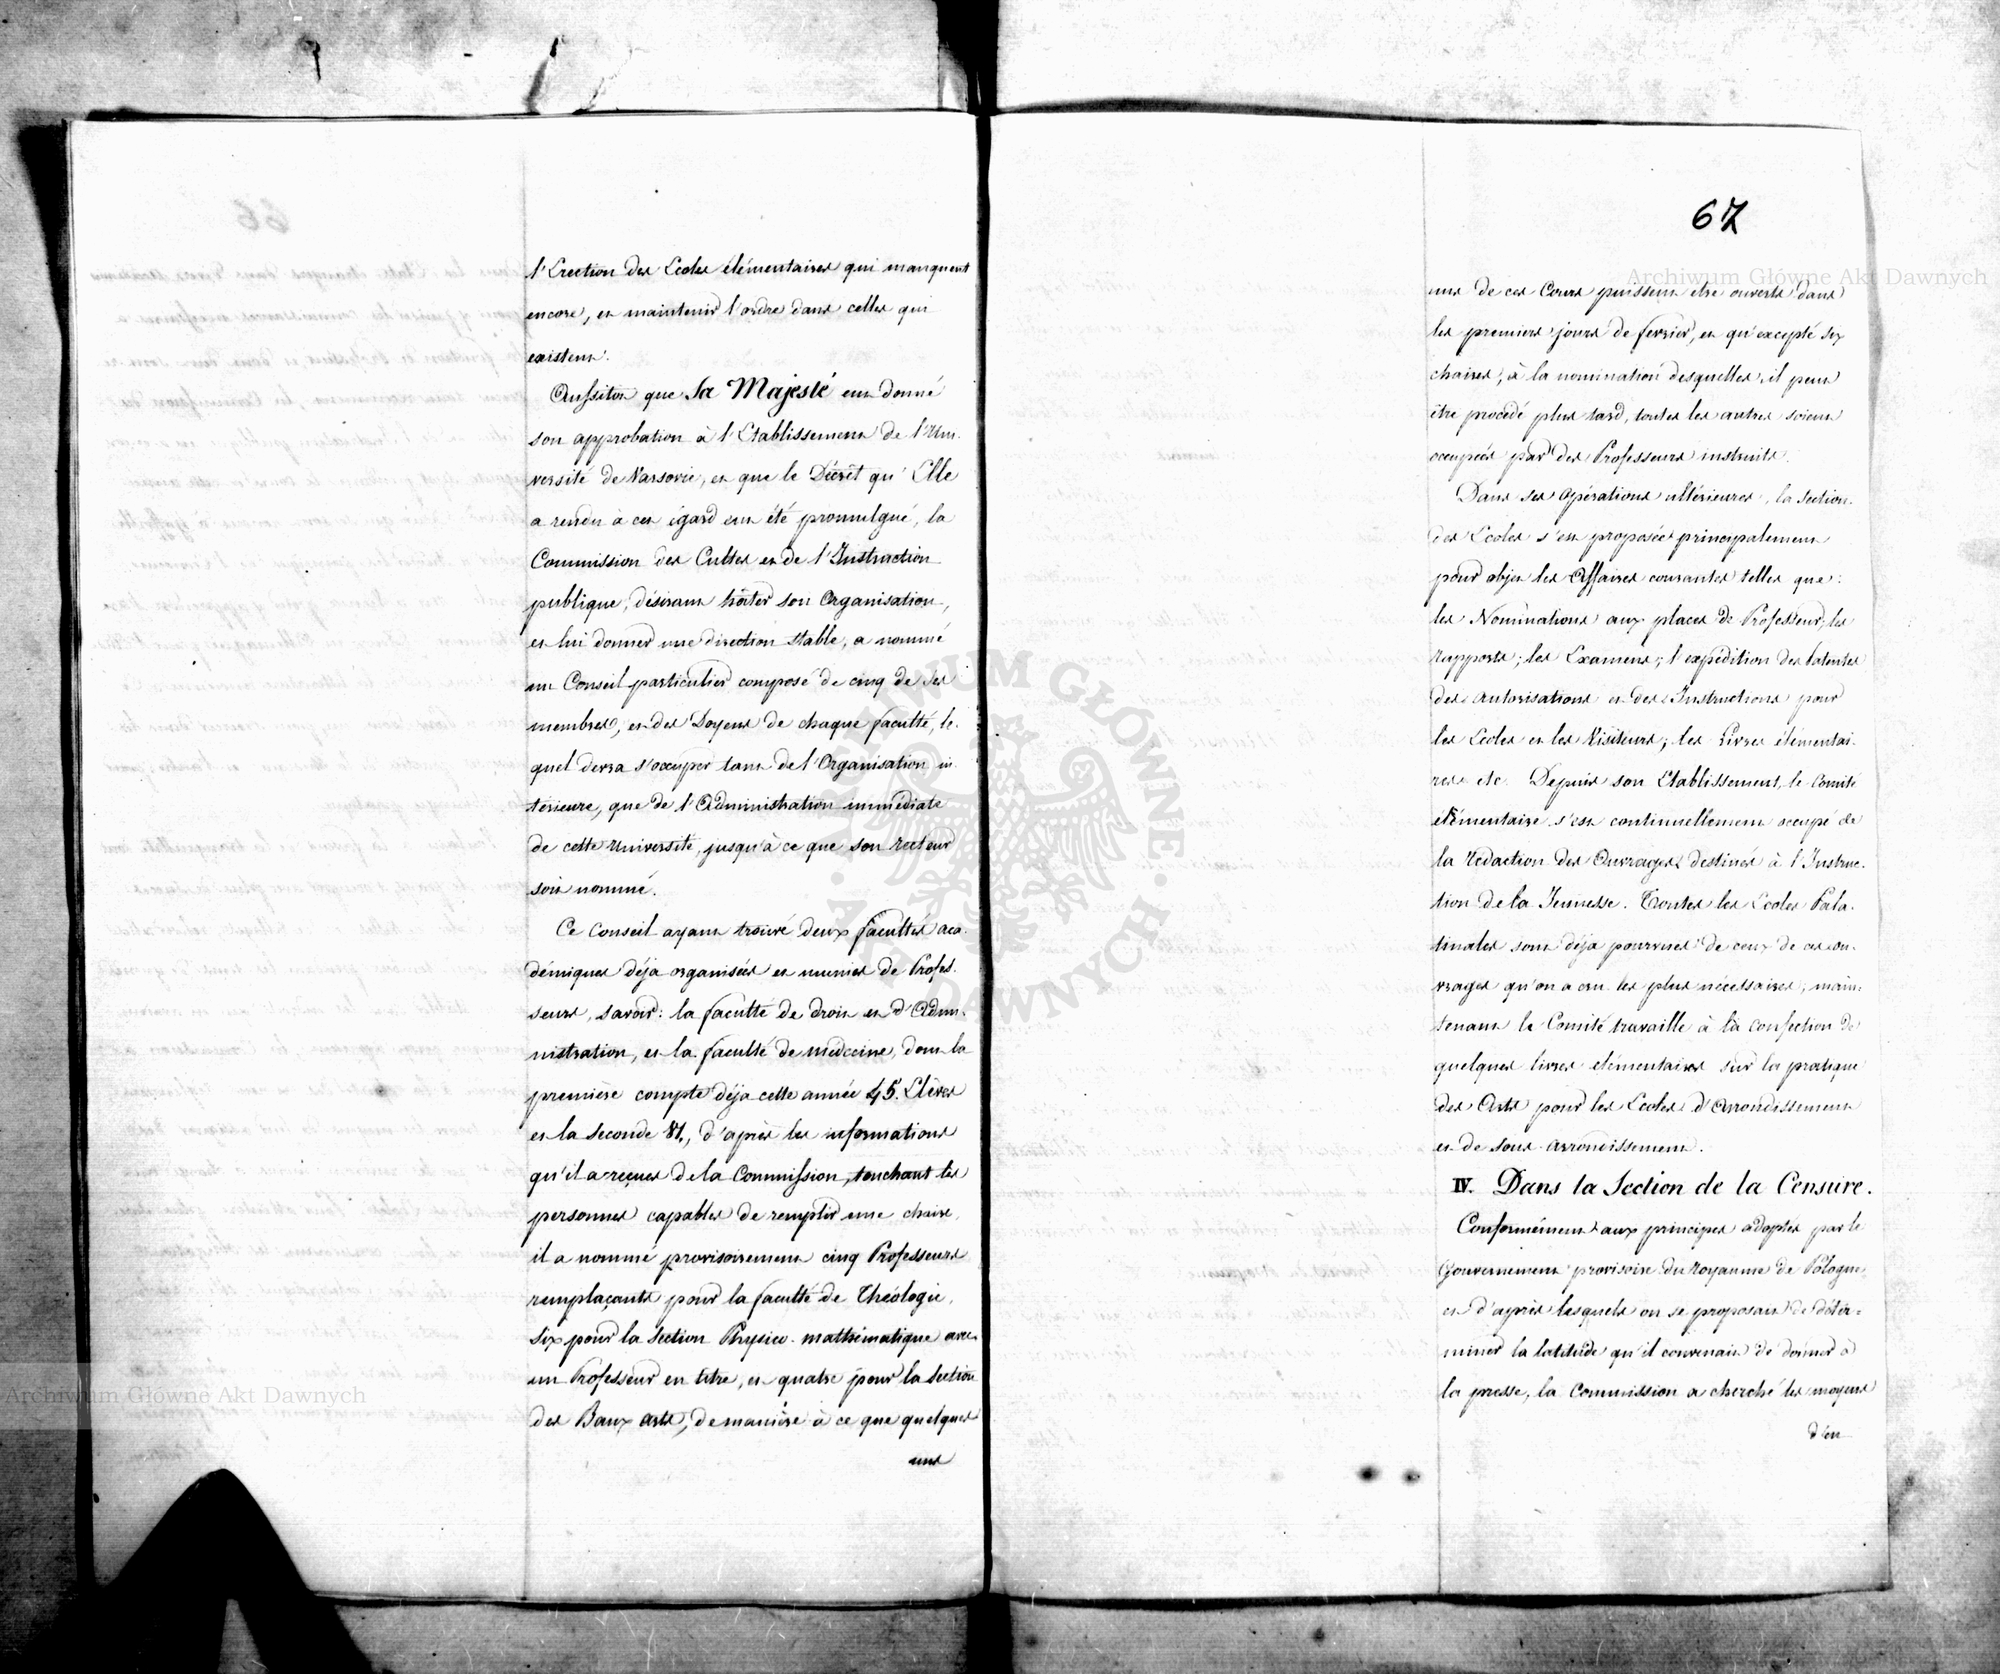 l'Erection des Ecoles élémentaires qui manquent
encore, et maintenir l'ordre dans celles qui
existent.
Aussitot que Sa Majesté eut donné
son approbation à l'Etablissement de l'Uni-
versité de Varsovie, et que le Décret qu'Elle
a rendu à cet égard eut été promulgué, la
Commission des Cultes et de l'Instruction
publique, désirant hâter son Organisation,
et lui donner une direction stable, a nommé
un Conseil particulier composé de cinq de ses
membres, et des Doyens de chaque faculté, le-
quel devra s'occuper tant de l'Organisation in-
térieure, que de l'Administration immédiate
de cette université, jusqu'à ce que son recteur
soit nommé.
Ce Conseil ayant trouvé deux facultés aca-
démiques déja organisées et munies de Profes-
seurs, savoir: la faculté de droit et d'Admi-
nistration, et la faculté de médecine, dont la
première compte déja cette année 45. Elèves
et la seconde 81, d'après les informations
qu'il a reçues de la Commission, touchant les
personnes capables de remplir une chaire,
il a nommé provisoirement cinq Professeurs
remplaçants pour la faculté de Théologie,
six pour la Section Physico-mathématique avec
un Professeur en titre, et quatre pour la Section
des Baux arts, de manière à ce que quelques
uns
67
uns de ces Cours puissent etre ouverts dans
les premiers jours de fevrier, et qu'excepté six
chaires, à la nomination desquelles il peut
être procédé plus tard, toutes les autres soient
occupées par des Professeurs instruits.
Dans ses Opérations ultérieures, la Section
des Ecoles s'est proposée principalement
pour objet les Affaires courantes telles que:
les Nominations aux places de Professeur; les
rapports; les Examens; l'expédition des Patentes
des Autorisations et des Instructions pour
les Ecoles et les Visiteurs; les Livres élémentai-
res etc. Depuis son Etablissement, le Comité
élémentaire s'est continuellement occupé de
la rédaction des Ouvrages destinés à l'Instruc-
tion de la Jeunesse. Troutes les Ecoles Pala-
tinales sont déja pourvues de ceux de ces ou-
vrages qu'on a cru les plus nécessaires; main-
tenant le Comité travaille à la confection de
quelques livres elémentaires sur la pratique
des Arts pour les Ecoles d'Arrondissement
et de sous-arrondissement.
IV. Dans la Section de la Censure.
Conformément aux principes adoptés par le
Gouvernement provisoire du Royaume de Pologne,
et d'après lesquels on se proposait de déter-
miner la latitude qu'il convenait de donner à
la presse, la Commission a cherché les moyens
d'en
Archiwum Główne Akt Dawnych
Archiwum Główne Akt Dawnych
ARCHIWUM GŁÓWNE · AKT DAWNYCH ·